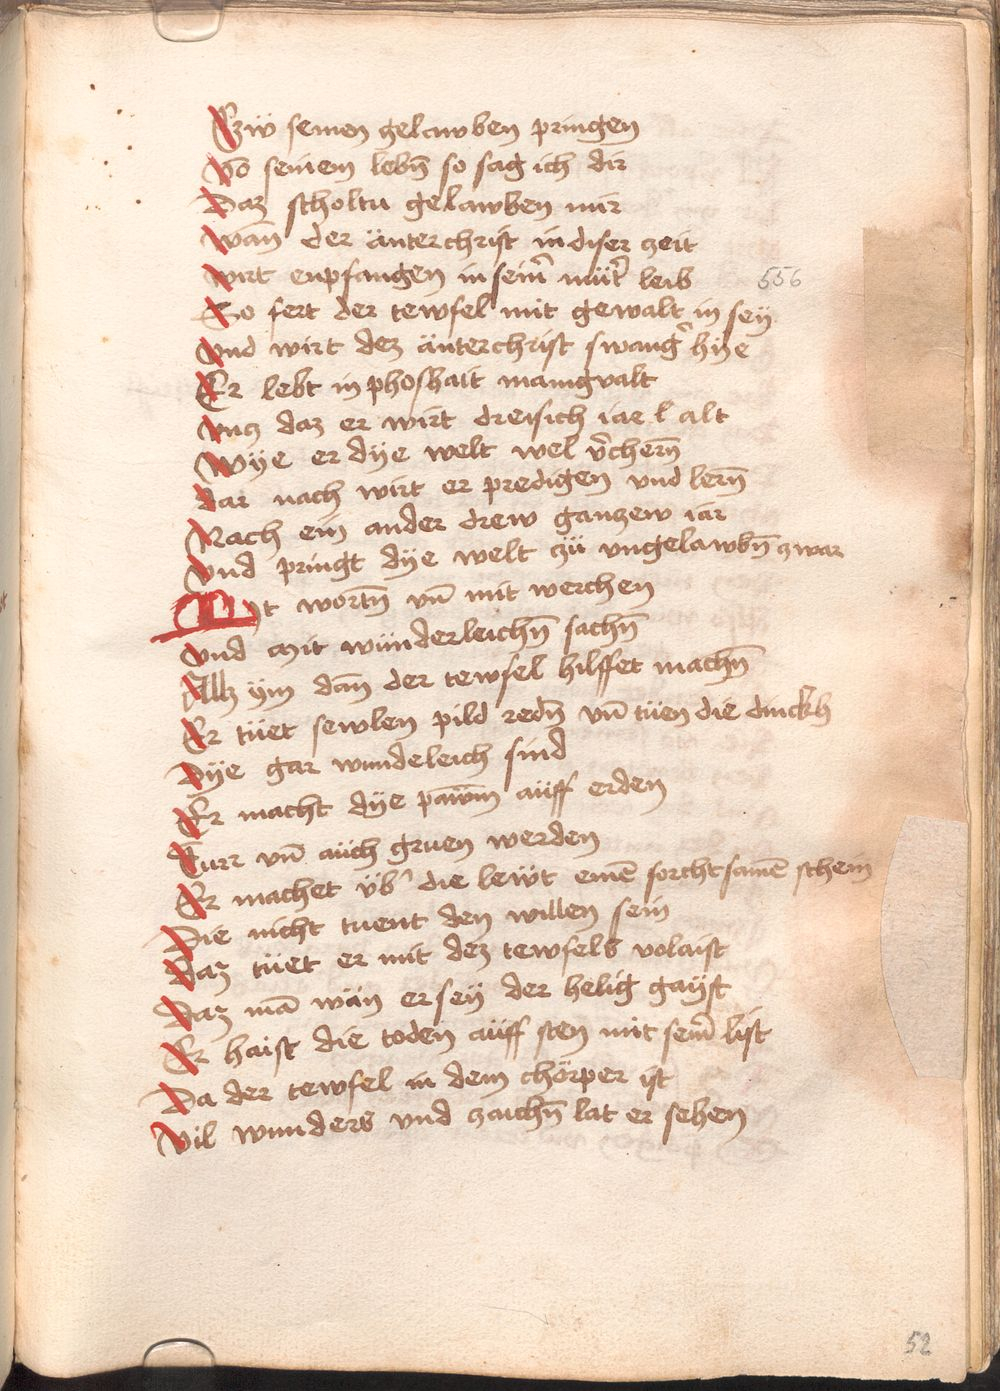 Czw seinen gelawben pringen
Vō seinem lebn̄ so sag ich dir
Daz scholtu gelawben mir
Wan̄ der änterchrist in diser zeit
Wirt enpfangen in seim̄ müt̄ leib
556
So fert der tewfel mit gewalt in sey
Vnd wirt dez änterchrist swanḡ hye
Er lebt in phoshait manigualt
Vncz daz er wirt dreisich iar alt
Wye er dye welt wel v̄chern̄
Dar nach wirt er predigen vnd lern̄
Nach ein ander drew ganzew iar
Vnd pringt dye welt zü vngelawbn̄ zwar
Mit wortn̄ vn̄ mit werchen
Vnd mit wünderleichn̄ sachn̄
Allz ym dan̄ der tewfel hilffet machn̄
Er tüet sewlen pild redn̄ vn̄ tüen die dinckh
Dye gar wundeleich sind
Er macht dye pawm̄ aüff erden
Durr vn̄ aüch gruen werden
Er machet üb̄ die lewt einē forchtsamē schein
Die nicht tuent den willen sein
Daz tüet er mit dez tewfels volaist
Daz mā wän er sey der helig gayst
Er haist die toden aüff sten mit seim̄ list
Da der tewfel in dem chörper ist
Vil wunders vnd zaichn̄ lat er sehen
52